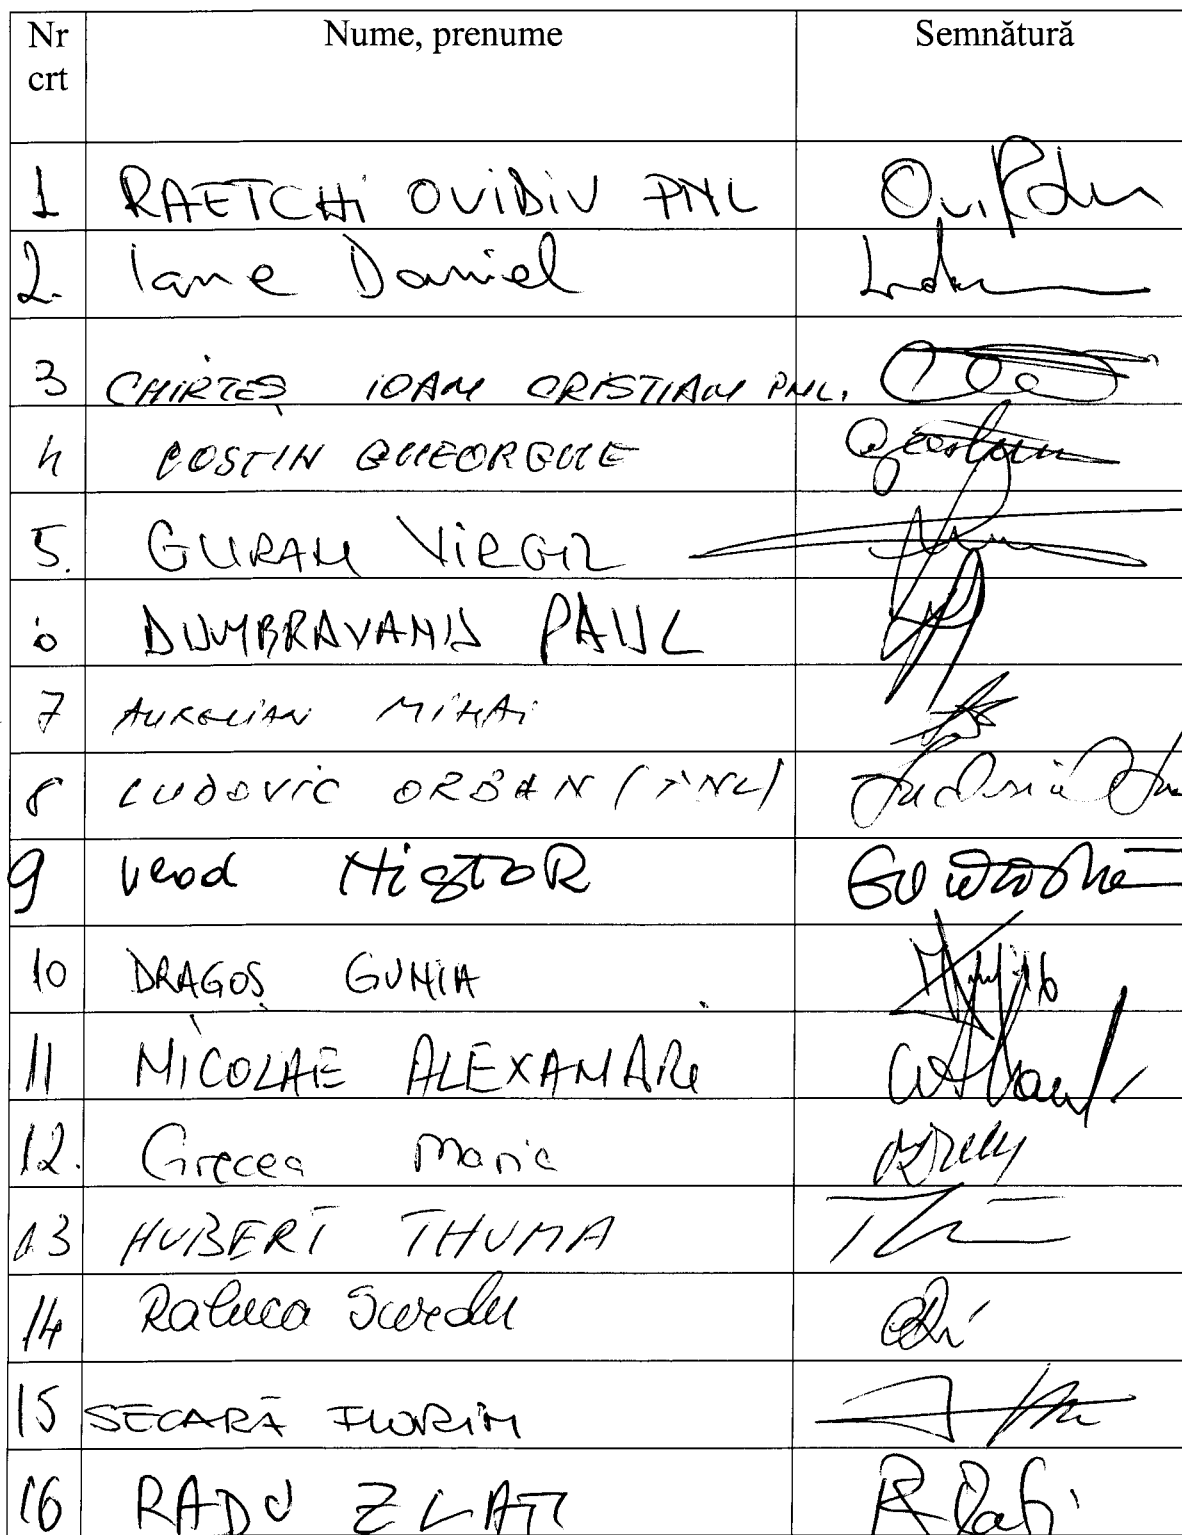 Nr crt Nume, prenume Semnătură
1 RAETCHI OVIDIU PNL
2. Iane Daniel
3 CHIRTEȘ IOAN CRISTIAN PNL.
4 COSTIN GHEORGHE
5. GURAN VIRGIL
6 DUMBRAVANU PAUL
7 AURELIAN MIHAI
8 LUDOVIC ORBAN (PNL)
9 Vlad NISTOR
10 DRAGOȘ GUNIA
11 NICOLAE ALEXANDRU
12. Grecea Maria
13 HUBERT THUMA
14 Raluca Surdu
15 SECARĂ FLORIN
16 RADU ZLATI